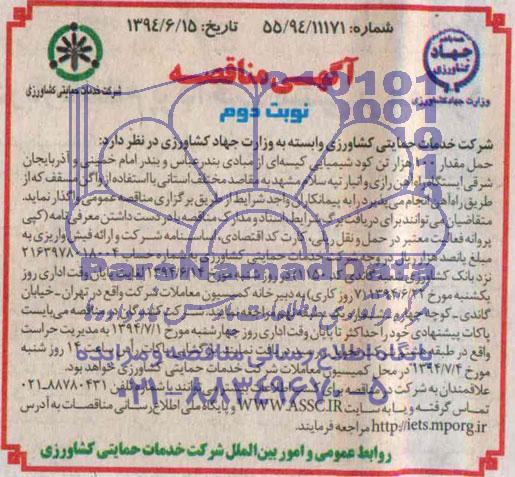 شماره: ۵۵/۹۴/۱۱۱۷۱ تاریخ: ۱۳۹۴/۶/۱۵
جهاد کشاورزی
وزارت جهاد کشاورزی
شرکت خدمات حمایتی کشاورزی
آگهی مناقصه
نوبت دوم
شرکت خدمات حمایتی کشاورزی وابسته به وزارت جهاد کشاورزی در نظر دارد:
حمل مقدار ۲۰۰ هزار تن کود شیمیایی کیسه‌ای از مبادی بندرعباس و بندر امام خمینی و آذربایجان
شرقی ایستگاه راه‌آهن رازی و انبار تپه سلام مشهد به مقاصد مختلف استانی با استفاده از واگن مسقف که از
طریق راه‌آهن انجام می‌پذیرد را به پیمانکاران واجد شرایط از طریق برگزاری مناقصه عمومی واگذار نماید.
متقاضیان می‌توانند برای دریافت برگ شرایط اسناد و مدرک مناقصه با در دست داشتن معرفی‌نامه (کپی
پروانه فعالیت معتبر در حمل و نقل ریلی، کارت کد اقتصادی، اساسنامه شرکت و ارائه فیش واریزی به
مبلغ پانصد هزار ریال در وجه شرکت خدمات حمایتی کشاورزی به شماره حساب
نزد بانک کشاورزی کد ۱۱۵۰ از روز شنبه مورخ ۱۳۹۴/۶/۱۴ لغایت پایان وقت اداری روز
یکشنبه مورخ ۱۳۹۴/۶/۲۲ (۷ روز کاری) به دبیرخانه کمیسیون معاملات شرکت واقع در تهران - خیابان
گاندی - کوچه چهارم مراجعه نمایند. شرکت‌کنندگان در مناقصه می‌بایست
پاکات پیشنهادی خود را حداکثر تا پایان وقت اداری روز چهارشنبه مورخ ۱۳۹۴/۷/۱ به مدیریت حراست
واقع در طبقه نمایند. پاکات رأس ساعت ۱۴ روز شنبه
مورخ ۱۳۹۴/۷/۴ در محل کمیسیون معاملات شرکت خدمات حمایتی کشاورزی خواهد بود.
علاقمندان به شرکت در مناقصه برای کسب اطلاعات با شماره تلفن ۸۸۷۸۰۴۳۱-۰۲۱
تماس گرفته و یا به سایت WWW.ASSC.IR و پایگاه ملی اطلاع‌رسانی مناقصات به آدرس
http://iets.mporg.ir مراجعه فرمایند.
روابط عمومی و امور بین‌الملل شرکت خدمات حمایتی کشاورزی
ParsNamadData
پایگاه اطلاع رسانی مناقصه و مزایده
۰۲۱-۸۸۳۴۹۶۷۰-۵